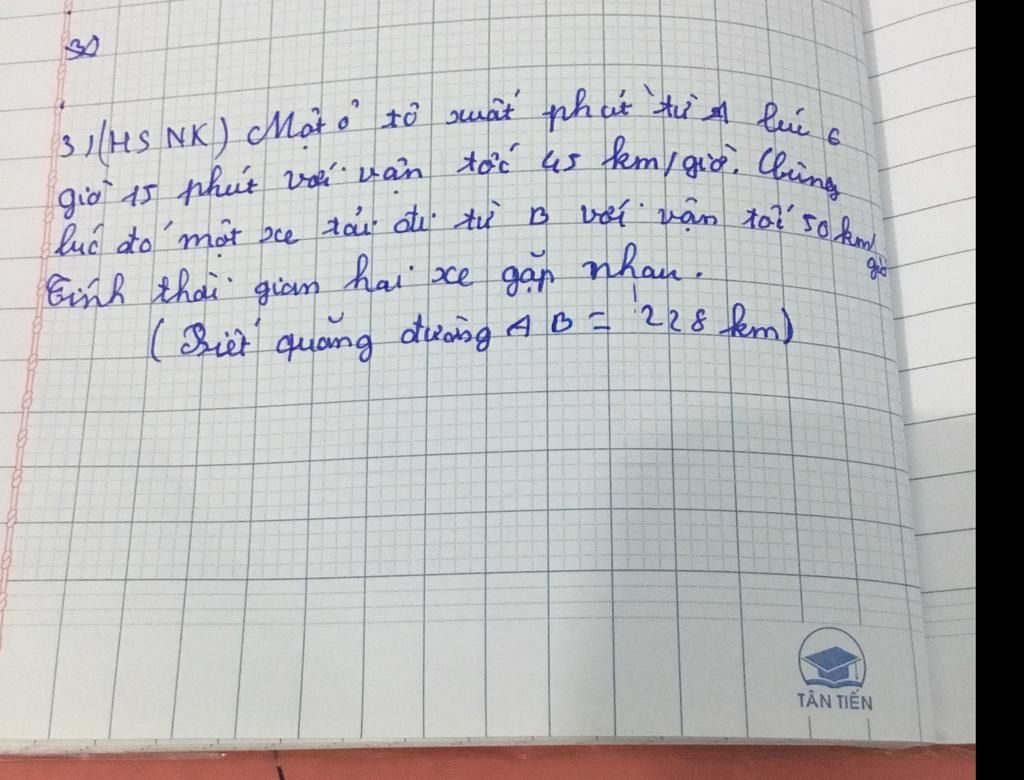 3)
3) (HS NK) Một ô tô xuất phát từ A lúc 6
giờ 15 phút với vận tốc 45 km/giờ. Cùng
lúc đó một xe tải đi từ B với vận tốc 50 km/
giờ
Tính thời gian hai xe gặp nhau.
(Biết quãng đường AB = 228 km)
TÂN TIẾN